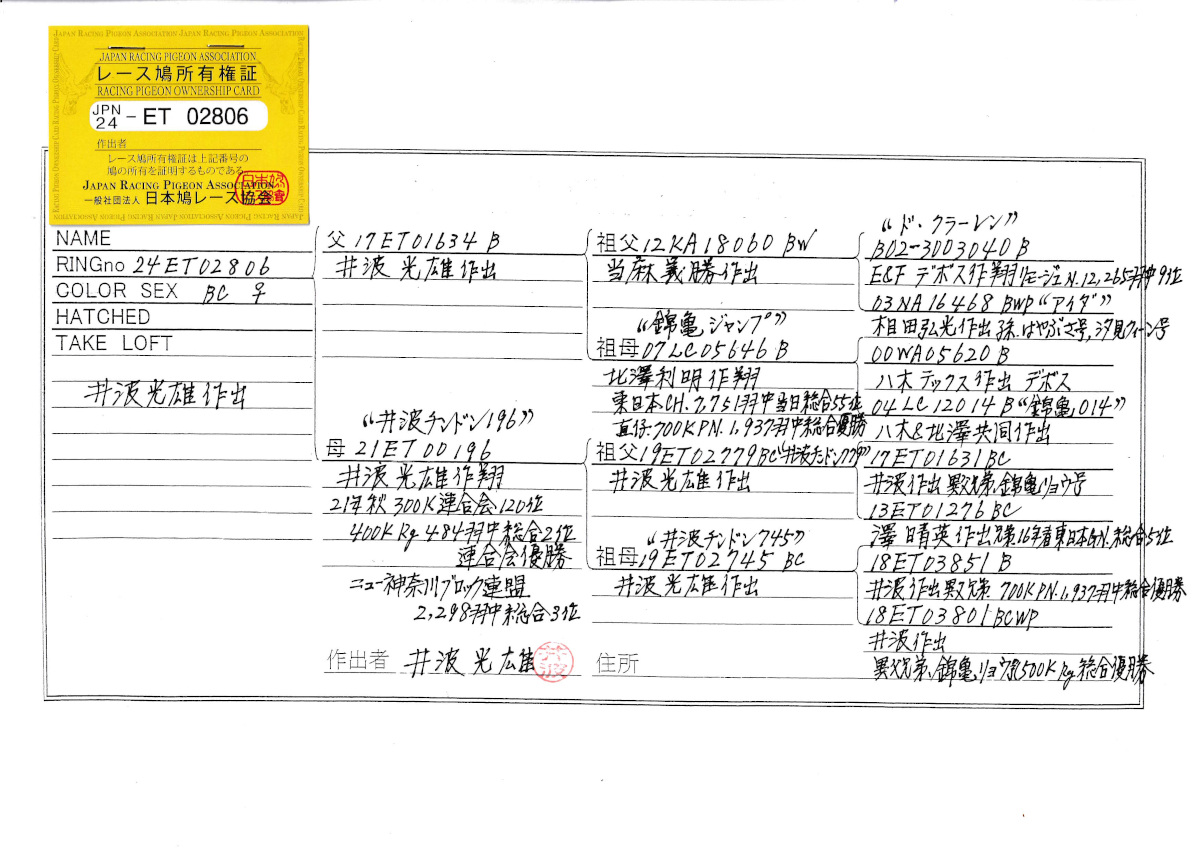 JAPAN RACING PIGEON ASSOCIATION JAPAN RACING PIGEON ASSOCIATION
JAPAN RACING PIGEON ASSOCIATION
レース鳩所有権証
RACING PIGEON OWNERSHIP CARD
JPN 24 - ET 02806
作出者
レース鳩所有権証は上記番号の
鳩の所有を証明するものである
JAPAN RACING PIGEON ASSOCIATION
一般社団法人 日本鳩レース協会
NAME
RINGno 24ET02806
COLOR SEX BC ♀
HATCHED
TAKE LOFT
井波光雄作出
父 17ET01634 B
井波光雄作出
"井波チンドン196"
母 21ET00196
井波光雄作翔
21年秋300K連合会120位
400KRg 484羽中総合2位
連合会優勝
ニュー神奈川ブロック連盟
2,298羽中総合3位
作出者 井波光雄
井波
祖父 12KA18060 BW
当麻義勝作出
"錦亀ジャンプ"
祖母 07LC05646 B
北澤利明作翔
東日本CH.7,751羽中当日総合55位
直仔700KPN.1,937羽中総合優勝
祖父 19ET02779 BC "井波チンドン779"
井波光雄作出
"井波チンドン745"
祖母 19ET02745 BC
井波光雄作出
住所
"ド・クラーレン"
B02-3003040 B
E&F デボス作翔リモージュN.12,265羽中9位
03NA16468 BWP "アイダ"
相田弘光作出 孫.はやぶさ号,汐見クィーン号
00WA05620 B
八木テックス作出 デボス
04LC12014 B "錦亀014"
八木&北澤共同作出
17ET01631 BC
井波作出異父兄弟,錦亀リョウ号
13ET01276 BC
澤晴英作出兄弟16年春東日本GN.総合5位
18ET03851 B
井波作出異父兄弟 700KPN.1,937羽中総合優勝
18ET03801 BCWP
井波作出
異父兄弟,錦亀リョウ号500KRg.総合優勝